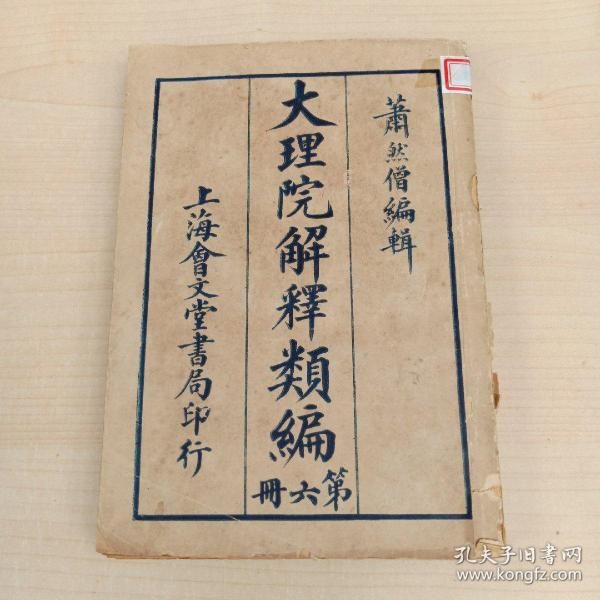 蕭然僧編輯
大理院解釋類編
第六冊
上海會文堂書局印行
孔夫子旧书网
www.kongfz.com